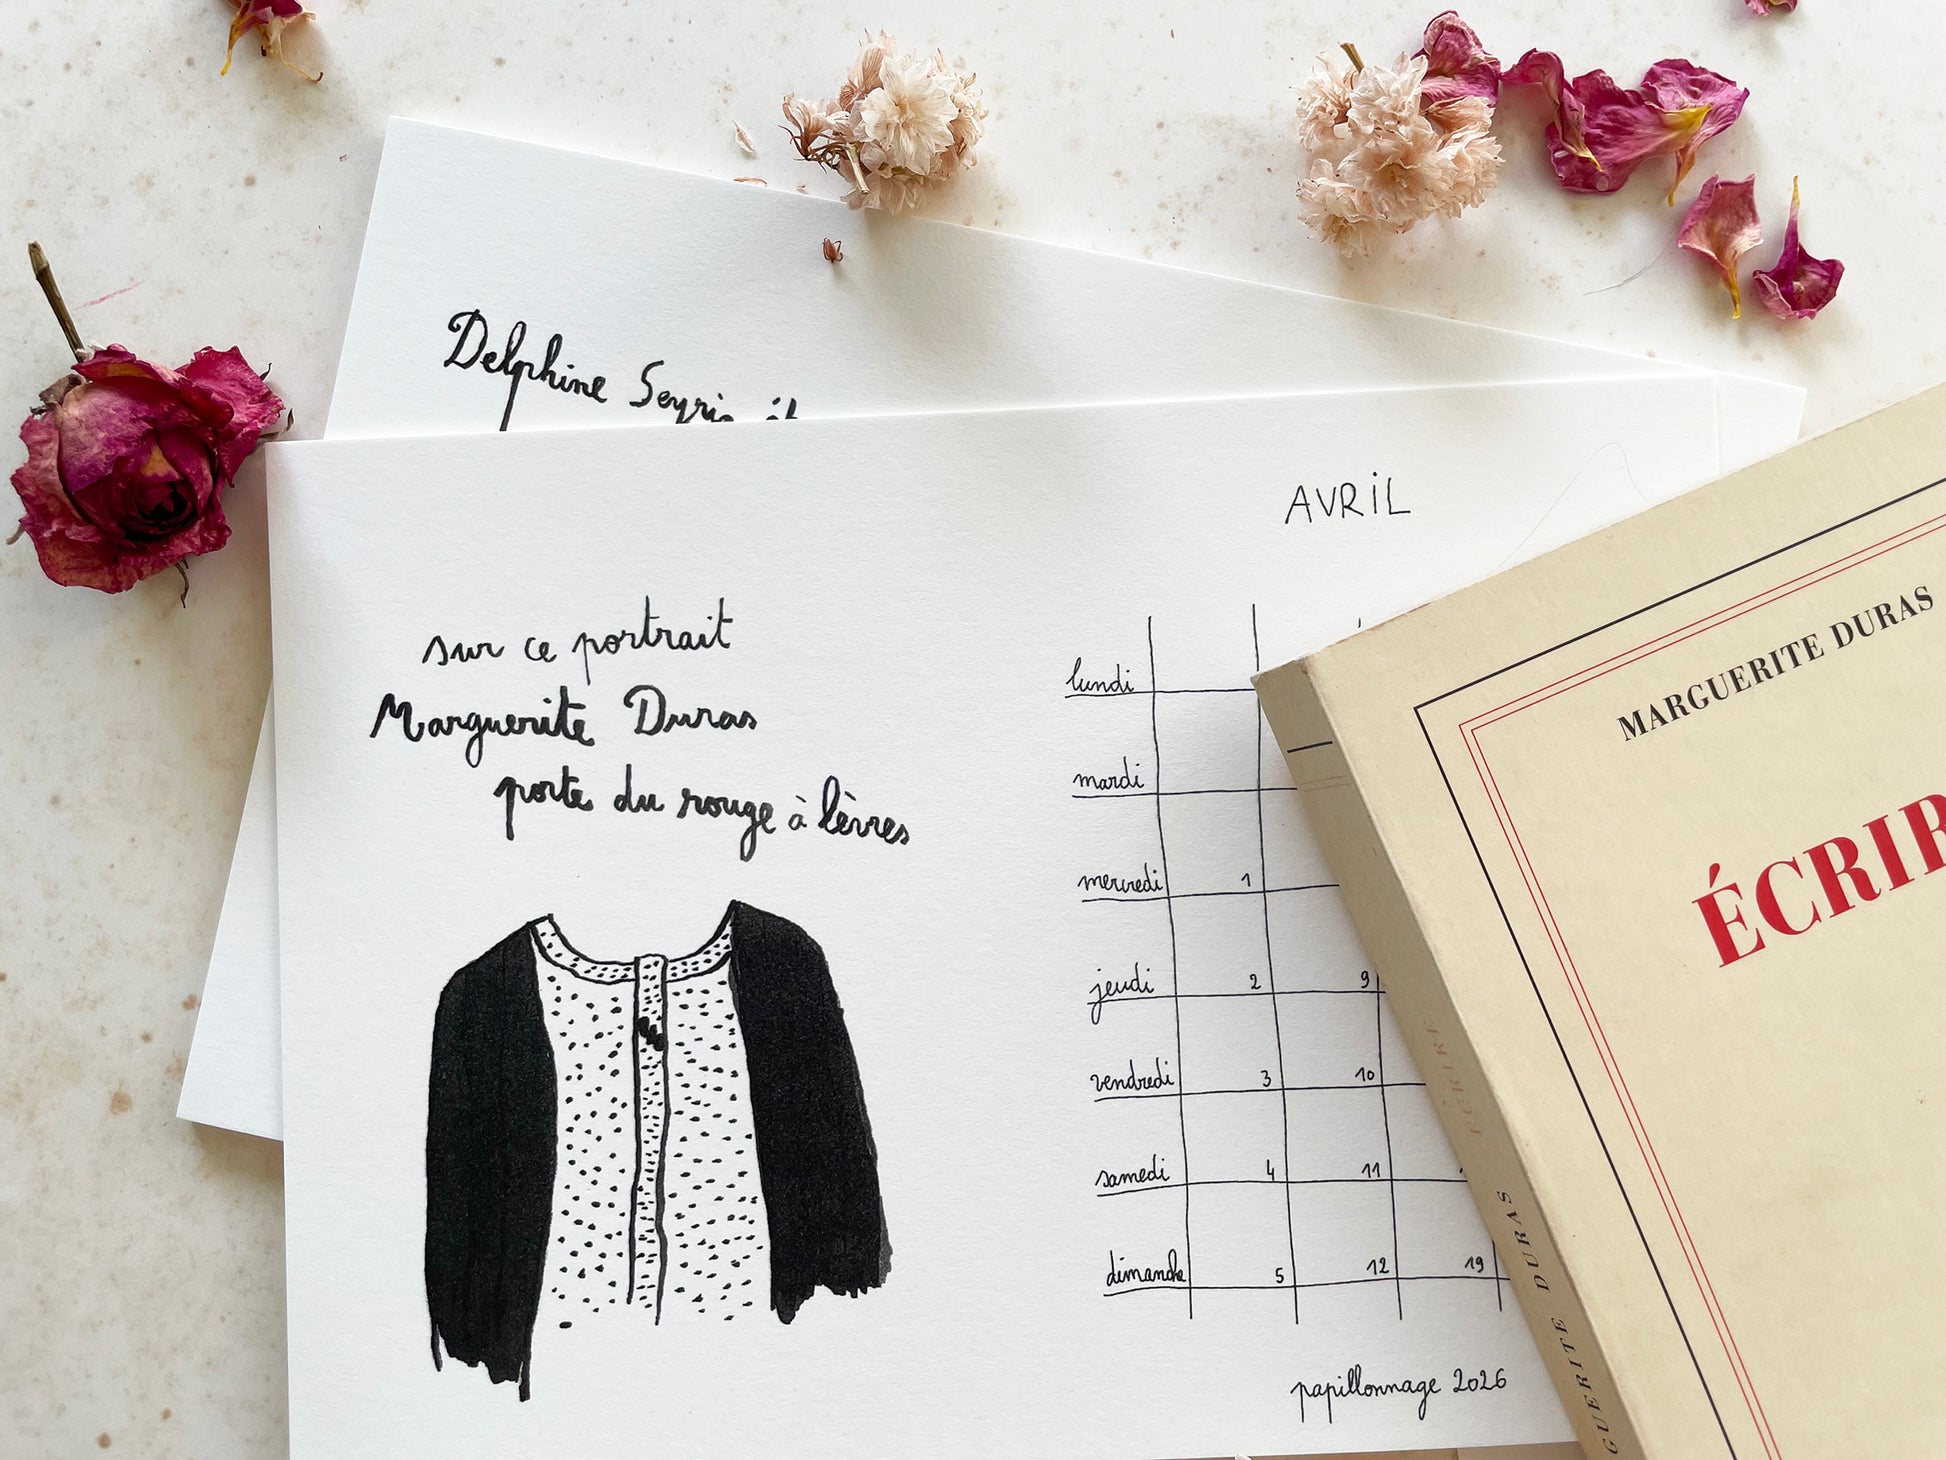 Delphine Seyrig
AVRIL
sur ce portrait
Marguerite Duras
porte du rouge à lèvres
lundi
mardi
mercredi 1
jeudi 2 9
vendredi 3 10
samedi 4 11
dimanche 5 12 19
papillonnage 2026
MARGUERITE DURAS
ÉCRIR
ÉCRIRE
GUERITE DURAS